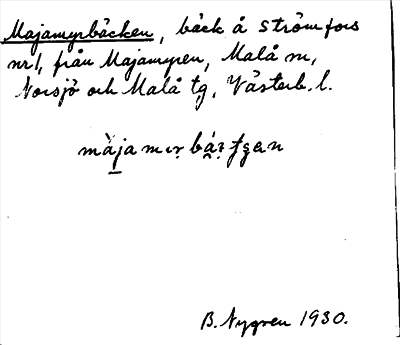 Majamyrbäcken, bäck å Strömfors
nr 1, från Majamyren, Malå sn,
Norsjö och Malå tg, Västerb. l.
B. Nygren 1930.